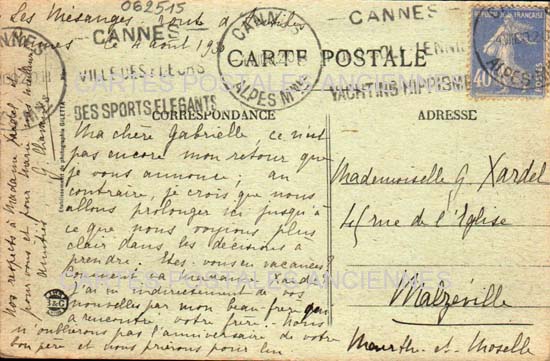 062515
Les Mésanges - route d'Antibes
Cannes le 4 août 930
CANNES
VILLE DES FLEURS
DES SPORTS ELEGANTS
CANNES
ALPES MMES
CANNES
YACHTING HIPPISME
CARTE POSTALE
REPUBLIQUE FRANÇAISE
40
CORRESPONDANCE
ADRESSE
Ma chère Gabrielle ce n'est
pas encore mon retour que
je vous annonce ; au
contraire, je crois que nous
allons prolonger ici jusqu'à
ce que nous voyions plus
clair dans les décisions à
prendre. Etes-vous en vacances?
j'ai eu indirectement de vos
nouvelles par mon beau-frère qui
a rencontré votre frère. Nous
n'oublierons pas l'anniversaire de votre
bon père et nous prierons pour lui
Nos respects à Madame Xardel et
pour vous et pour Marie nos meilleures
amitiés
Mademoiselle G Xardel
rue de l'Eglise
Malzéville
Meurthe-et-Moselle
CARTES POSTALES ANCIENNES
CARTES POSTALES ANCIENNES